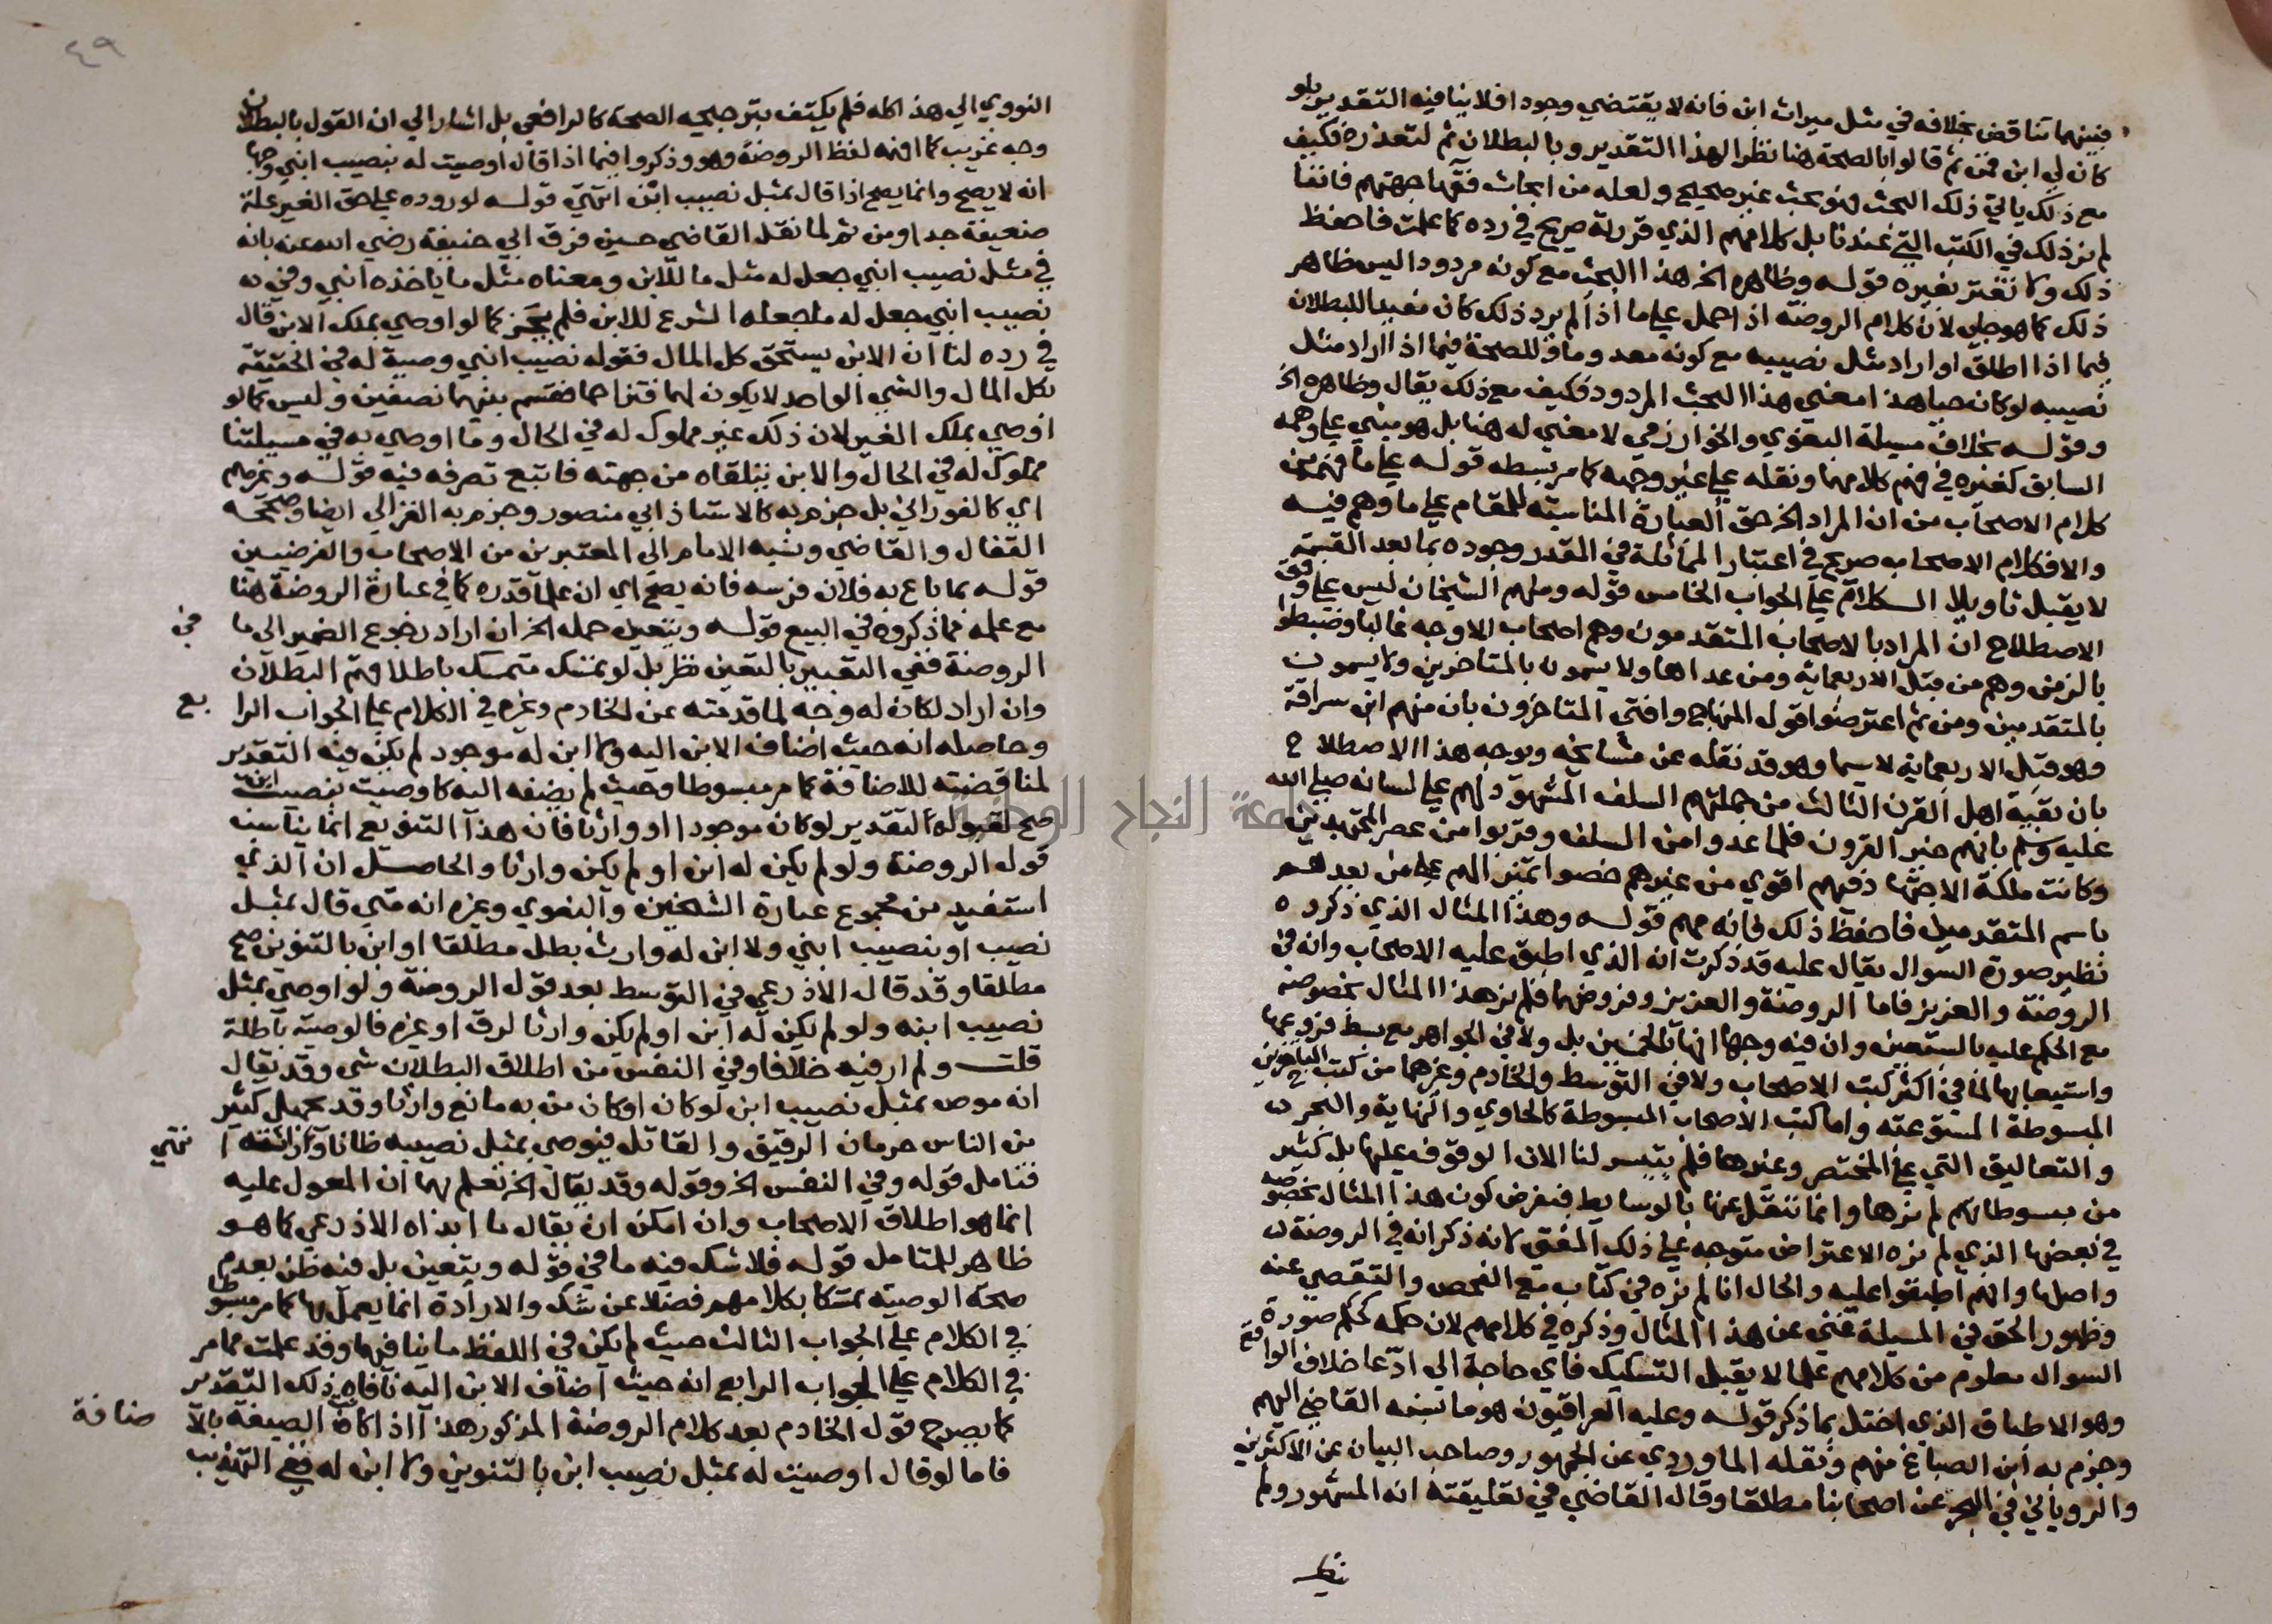 فبينهما تناقض بخلافه في مثل ميراث ابن فانه لا يقتضي وجودا فلا ينافيه التقدير بلو
كان لي ابن فمن ثم قالوا بالصحة هنا نظرا لهذا التقدير وبالبطلان ثم لتعذره فكيف
مع ذلك ياتي ذلك البحث فهو بحث غير صحيح ولعله من ابحاث فقها جهتهم فاننا
لم نر ذلك في الكتب التي عندنا بل كلامهم الذي قررته صريح في رده كما علمت فاحفظ
ذلك ولا تغتر بغيره قوله وظاهره الخ هذا البحث مع كونه مردودا ليس ظاهر
ذلك كما هو جلي لان كلام الروضة اذا حمل على ما اذا لم يرد ذلك كان مفيدا للبطلان
فيما اذا اطلق او اراد مثل نصيبه مع كونه معدوما وللصحة فيما اذا اراد مثل
نصيبه لو كان حيا هذا معني هذا البحث المردود فكيف مع ذلك يقال وظاهره الخ
وقوله بخلاف مسيلة البغوي والخوارزمي لا معني له هنا بل هو مبني على وهمه
السابق كغيره في فهم كلامهما ونقله على غير وجهه كما مر بسطه قوله على ما فهم من
كلام الاصحاب من ان المراد الخ حق العبارة المناسبة للمقام على ما وهم فيه
والا فكلام الاصحاب صريح في اعتبار المماثلة في المقدر وجوده بما بعد القسمة
لا يقبل تاويلا الكلام على الجواب الخامس قوله ومنهم الشيخان ليس على وفق
الاصطلاح ان المراد بالاصحاب المتقدمون وهم اصحاب الاوجه غالبا وضبطوا
بالزمن وهم من قبل الاربعماية ومن عداها ولا يسمون بالمتاخرين ولا يسمون
بالمتقدمين ومن ثم اعترضوا قول المنهاج وافتي المتاخرون بان منهم ابن سراقة
وهو قبل الاربعماية لا سيما وهو قد نقله عن مشايخه ويوجه هذا الاصطلاح
بان بقية اهل القرن الثالث من جملتهم السلف المشهود لهم على لسانه صلى الله
عليه وسلم بانهم خير القرون فلما عدوا من السلف وقربوا من عصر المجتهدين
وكانت ملكة الاجتهاد فيهم اقوي من غيرهم خصوا تمييزا لهم على من بعدهم
باسم المتقدمين فاحفظ ذلك فانه مهم قوله وهذا المثال الذي ذكروه
نظير صورة السوال يقال عليه قد ذكرت انه الذي اطبق عليه الاصحاب وانه في
الروضة والعزيز فاما الروضة والعزيز وفروضهما فلم نر هذا المثال بخصوصه
مع الحكم عليه بالستعين وان فيه وجها انها بالخمسين بل ولا في الجواهر مع بسط فروعها
واستيعابها لما في اكثر كتب الاصحاب ولا في التوسط والخادم وغيرهما من كتب المتاخرين
المبسوطة المستوعبة واما كتب الاصحاب المبسوطة كالحاوي والنهاية والبحر
والتعاليق التي على المختصر وغيرها فلم يتيسر لنا الان الوقوف عليها بل كثير
من مبسوطاتهم لم نرها وانما ننقل عنها بالوسايط فبفرض كون هذا المثال بخصوصه
في بعضها الذي لم نره الاعتراض متوجه على ذلك المفتي لانه ذكر انه في الروضة
واصلها وانهم اطبقوا عليه والحال انا لم نره في كتاب مع الفحص والتقصي عنه
وظهور الحق في المسيلة غني عن هذا المثال وذكره في كلامهم لان حكمه كحكم صورة
السوال معلوم من كلامهم علما لا يقبل التشكيك فاي حاجة الي ادعا خلاف الواقع
وهو الاطباق الذي اختل بما ذكر قوله وعليه العراقيون هو ما نسبه القاضي اليهم
وجزم به ابن الصباغ منهم ونقله الماوردي عن الجمهور وصاحب البيان عن الاكثرين
والروياني في البحر عن اصحابنا مطلقا وقال القاضي في تعليقته انه المشهور ولم
٤٩
النووي الي هذا كله فلم يكتف بترجيحه الصحة كالرافعي بل اشار الي ان القول بالبطلان
وجه غريب كما افهمه لفظ الروضة وهو وذكروا فيما اذا قال اوصيت له بنصيب ابني وجها
انه لا يصح وانما يصح اذا قال بمثل نصيب ابن انتهي قوله لوروده على حق الغير علة
ضعيفة جدا ومن ثم لما نقل القاضي حسين فرق ابي حنيفة رضي الله عنه بانه
في مثل نصيب ابني جعل له مثل ما للابن ومعناه مثل ما ياخذه ابني وفي
نصيب ابني جعل له ما جعله الشرع للابن فلم يجز كما لو اوصي بملك الابن قال
في رده لنا ان الابن يستحق كل المال فقوله نصيب ابني وصية له في الحقيقة
بكل المال والشي الواحد لا يكون لهما فتزاحما فقسم بينهما نصفين وليس كما لو
اوصي بملك الغير لان ذلك غير مملوك له في الحال وما اوصي به في مسيلتنا
مملوك له في الحال والابن يتلقاه من جهته فاتبع تصرفه فيه قوله وغيرهم
اي كالفوراني بل جزم به كالاستاذ ابي منصور وجزم به الغزالي ايضا وصححه
القفال والقاضي ونسبه الامام الي المعتبرين من الاصحاب والفرضيين
قوله بما باع به فلان فرسه فانه يصح اي ان علما قدره كما في عبارة الروضة هنا
مع علمه مما ذكروه في البيع قوله ويتعين حمله الخ ان اراد رجوع الضمير الى ما في
الروضة ففي التعبير بالتعين نظر بل لو تمسك متمسك باطلاقهم البطلان
وان اراد لكان له وجه لما قدمته عن الخادم وغيره في الكلام على الجواب الرابع
وحاصله انه حيث اضافه الابن اليه ولا ابن له موجود لم يكن فيه التقدير
لمناقضته للاضافة كما مر مبسوطا وحيث لم يضفه اليه كاوصيت بنصيب ابن
صح لقبوله التقدير لو كان موجودا او وارثا فان هذا التنويع انما يناسبه
قول الروضة ولو لم يكن له ابن او لم يكن وارثا والحاصل ان الذي
استفيد من مجموع عبارة الشيخين والبغوي وغيره انه متي قال بمثل
نصيب او بنصيب ابني ولا ابن له وارث بطل مطلقا او ابن بالتنوين صح
مطلقا وقد قال الاذرعي في التوسط بعد قول الروضة ولو اوصي بمثل
نصيب ابنه ولو لم يكن له ابن او لم يكن وارثا لرق او غيره فالوصية باطلة
قلت ولم ار فيه خلافا وفي النفس من اطلاق البطلان شي وقد يقال
انه موص بمثل نصيب ابن لو كان او كان من به مانع وارثا وقد يجهل كثير
من الناس حرمان الرقيق والقاتل فيوصي بمثل نصيبه ظانا وارثته انتهي
فتامل قوله وفي النفس الخ وقوله وقد يقال الخ تعلم بهما ان المعول عليه
انما هو اطلاق الاصحاب وان امكن ان يقال ما ابداه الاذرعي كما هو
ظاهر للمتامل قوله فلا شك فيه ما في قوله ويتعين بل فيه ظن بعدم
صحة الوصية تمسكا بكلامهم فضلا عن شك والارادة انما يعمل بها كما مر مبسوطا
في الكلام على الجواب الثالث حيث لم يكن في اللفظ ما ينافيها وقد علمت مما مر
في الكلام على الجواب الرابع انه حيث اضاف الابن اليه نافاه ذلك التقدير
كما يصرح قول الخادم بعد كلام الروضة المذكور هذا اذا كان الصيغة بالاضافة
فاما لو قال اوصيت له بمثل نصيب ابن بالتنوين ولا ابن له ففي التهذيب
جامعة النجاح الوطنية